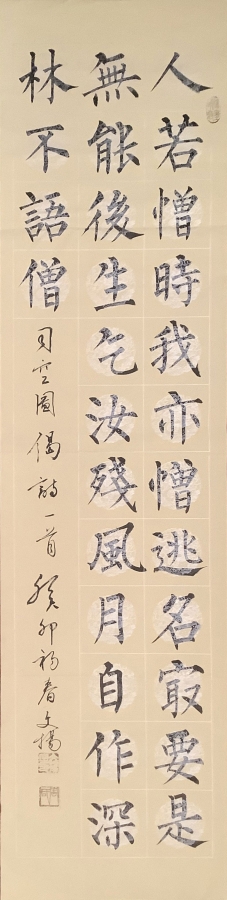 人若憎時我亦憎逃名㝡要是
無能後生乞汝殘風月自作深
林不語僧
司空圖偈詩一首癸卯初春文揚